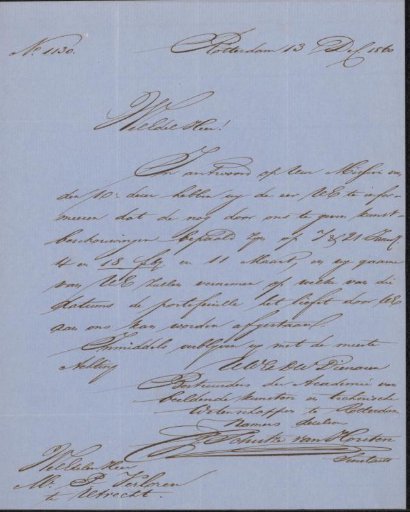 No. 1130. Rotterdam 13 Dec 1860
WelEdel Heer!
In antwoord op Uwe Missive van
den 10e dezer hebben wij de eer UE te infor-
meeren dat de nog door ons te geven kunst-
beschouwingen bepaald zijn op 7 & 21 Januarij
4 en 18 en 11 Maart, en wij gaarne
van UE zullen vernemen op welke van die
datums de portefeuille het liefst door UE
aan ons kan worden afgestaan.
Inmiddels verblijven wij met de meeste
Achting
UWEd DW Dienaren
Bestuurders der Academie van
beeldende kunsten en technische
Wetenschappen te Rotterdam
Namens dezelven
van Houten
Secretaris
WelEdelen Heer
Mr. P. Verloren
te Utrecht.